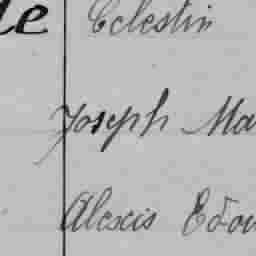 le Celestin
Joseph Ma
Alexis Edou